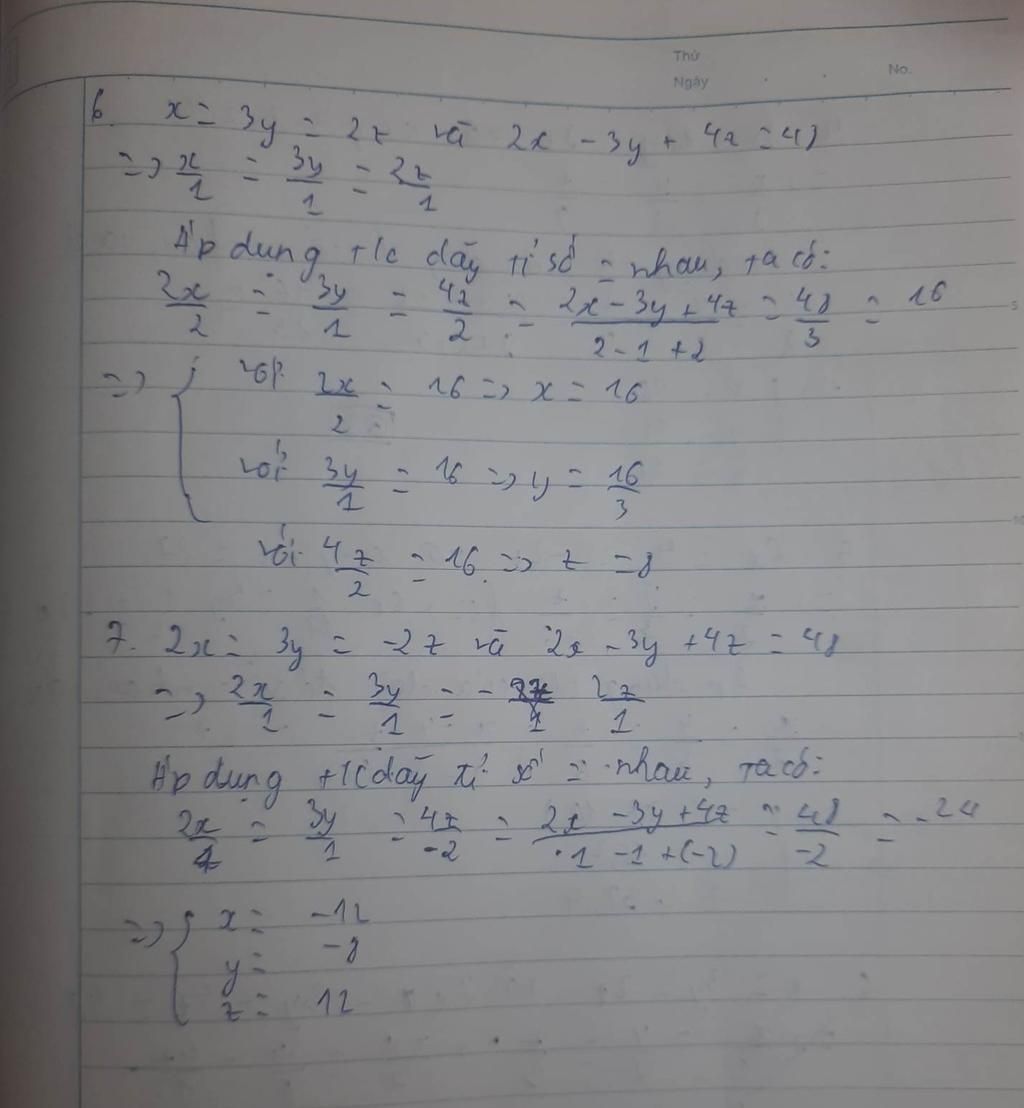 Thứ
Ngày
No.
6. x = 3y = 2z và 2x - 3y + 4z = 48
=> x/1 = 3y/1 = 2z/1
Áp dụng t/c dãy tỉ số = nhau, ta có:
2x/2 = 3y/1 = 4z/2 = (2x - 3y + 4z)/(2 - 1 + 2) = 48/3 = 16
=> { với 2x/2 = 16 => x = 16
với 3y/1 = 16 => y = 16/3
với 4z/2 = 16 => z = 8
7. 2x = 3y = -2z và 2x - 3y + 4z = 48
=> 2x/1 = 3y/1 = - 2z/1
Áp dụng t/c dãy tỉ số = nhau, ta có:
2x/1 = 3y/1 = 4z/-2 = (2x - 3y + 4z)/(1 - 1 + (-2)) = 48/-2 = -24
=> { x = -12
y = -8
z = 12